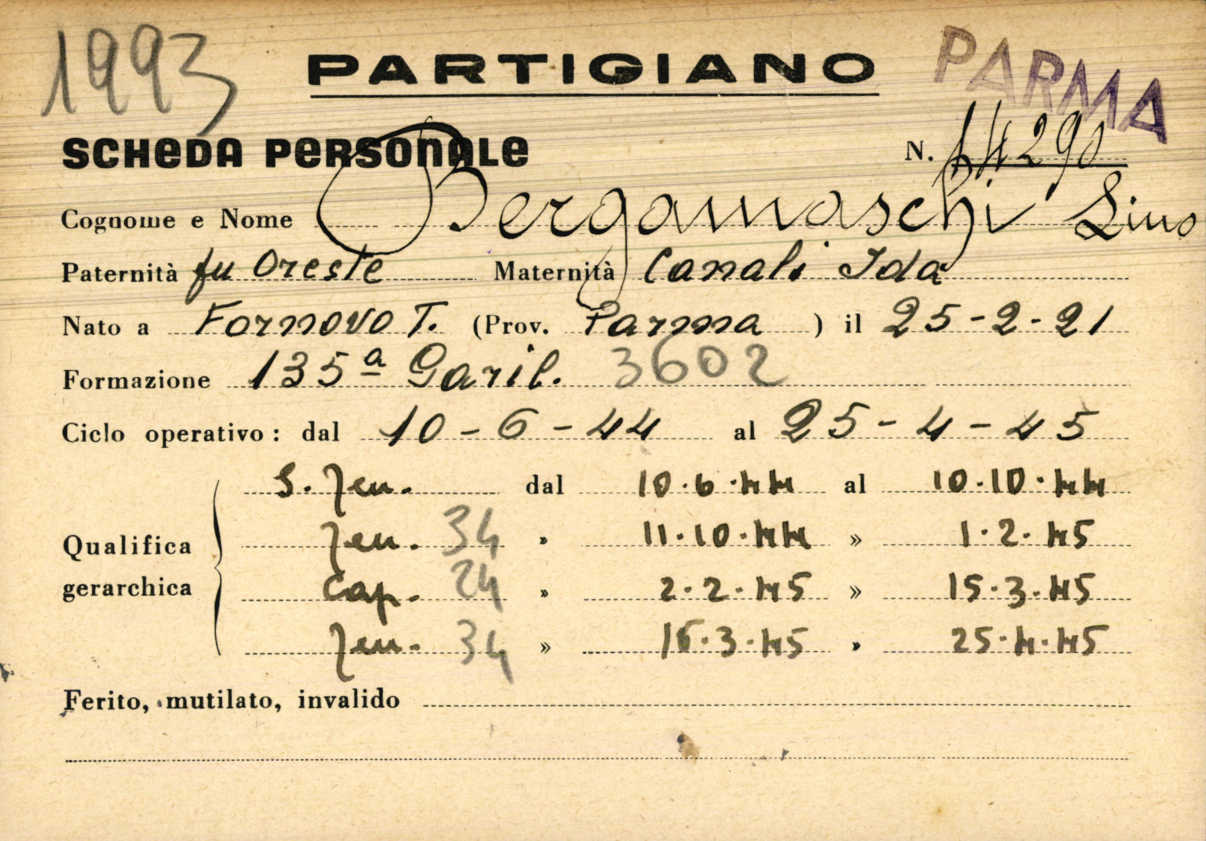 1993 PARTIGIANO PARMA
SCHEDA PERSONALE N. 14290
Cognome e Nome Bergamaschi Lino
Paternità fu Oreste Maternità Canali Ida
Nato a Fornovo T. (Prov. Parma ) il 25-2-21
Formazione 135ª Garib. 3602
Ciclo operativo: dal 10-6-44 al 25-4-45
S. Ten. dal 10.6.44 al 10.10.44
Qualifica gerarchica
Ten. 34 » 11.10.44 » 1.2.45
Cap. 24 » 2.2.45 » 15.3.45
Ten. 34 » 16.3.45 » 25.4.45
Ferito, mutilato, invalido